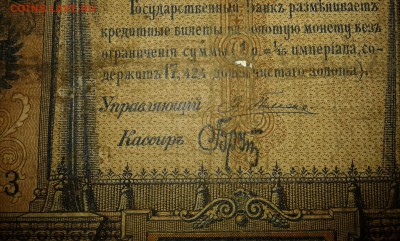 Государственный Банкъ размѣниваетъ
кредитные билеты на золотую монету безъ
ограниченія суммы (1 р. = 1/15 имперіала, со-
держитъ 17,424 долей чистаго золота).
Управляющій
Кассиръ
3